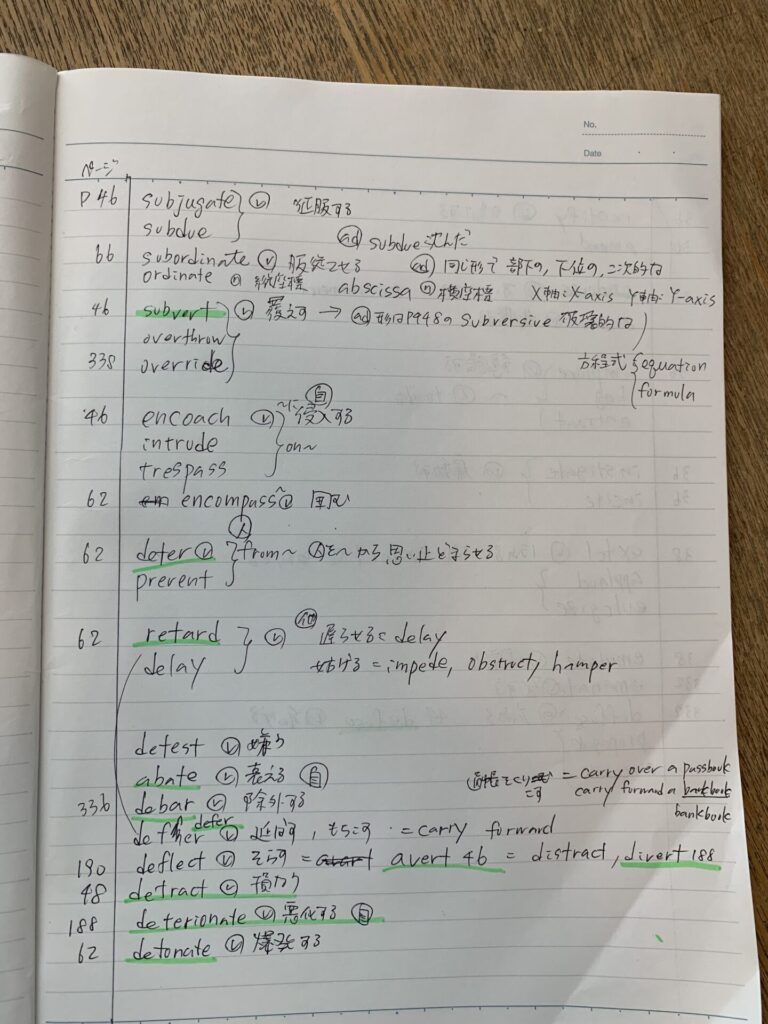 No.
Date
ページ
P46 subjugate } ⓥ 征服する
subdue
ad subdue 沈んだ
66 subordinate ⓥ 服従させる ad 同じ形で 部下の, 下位の, 二次的な
ordinate ⓝ 縦座標 abscissa ⓝ 横座標 X軸:X-axis Y軸:Y-axis
46 subvert } ⓥ 覆す → ad 形はP948の Subversive 破壊的な
overthrow
338 override
方程式 { equation
formula
46 encoach ⓥ ~に侵入する 自
intrude on~
trespass
62 encompass ⓥ 囲む
62 deter ⓥ } 人 from~ 人を~から思い止どまらせる
prevent
62 retard } ⓥ 他 遅らせる = delay
delay 妨げる = impede, obstruct, hamper
detest ⓥ 嫌う
abate ⓥ 衰える 自
= carry over a passbook
336 debar ⓥ 除外する
carry forward a bankbook
bankbook
defer
ⓥ 延ばす, = carry forward
190 deflect ⓥ そらす = avert 46 = distract, divert 188
48 detract ⓥ 損なう
188 deterionate ⓥ 悪化する 自
62 detonate ⓥ 爆発する